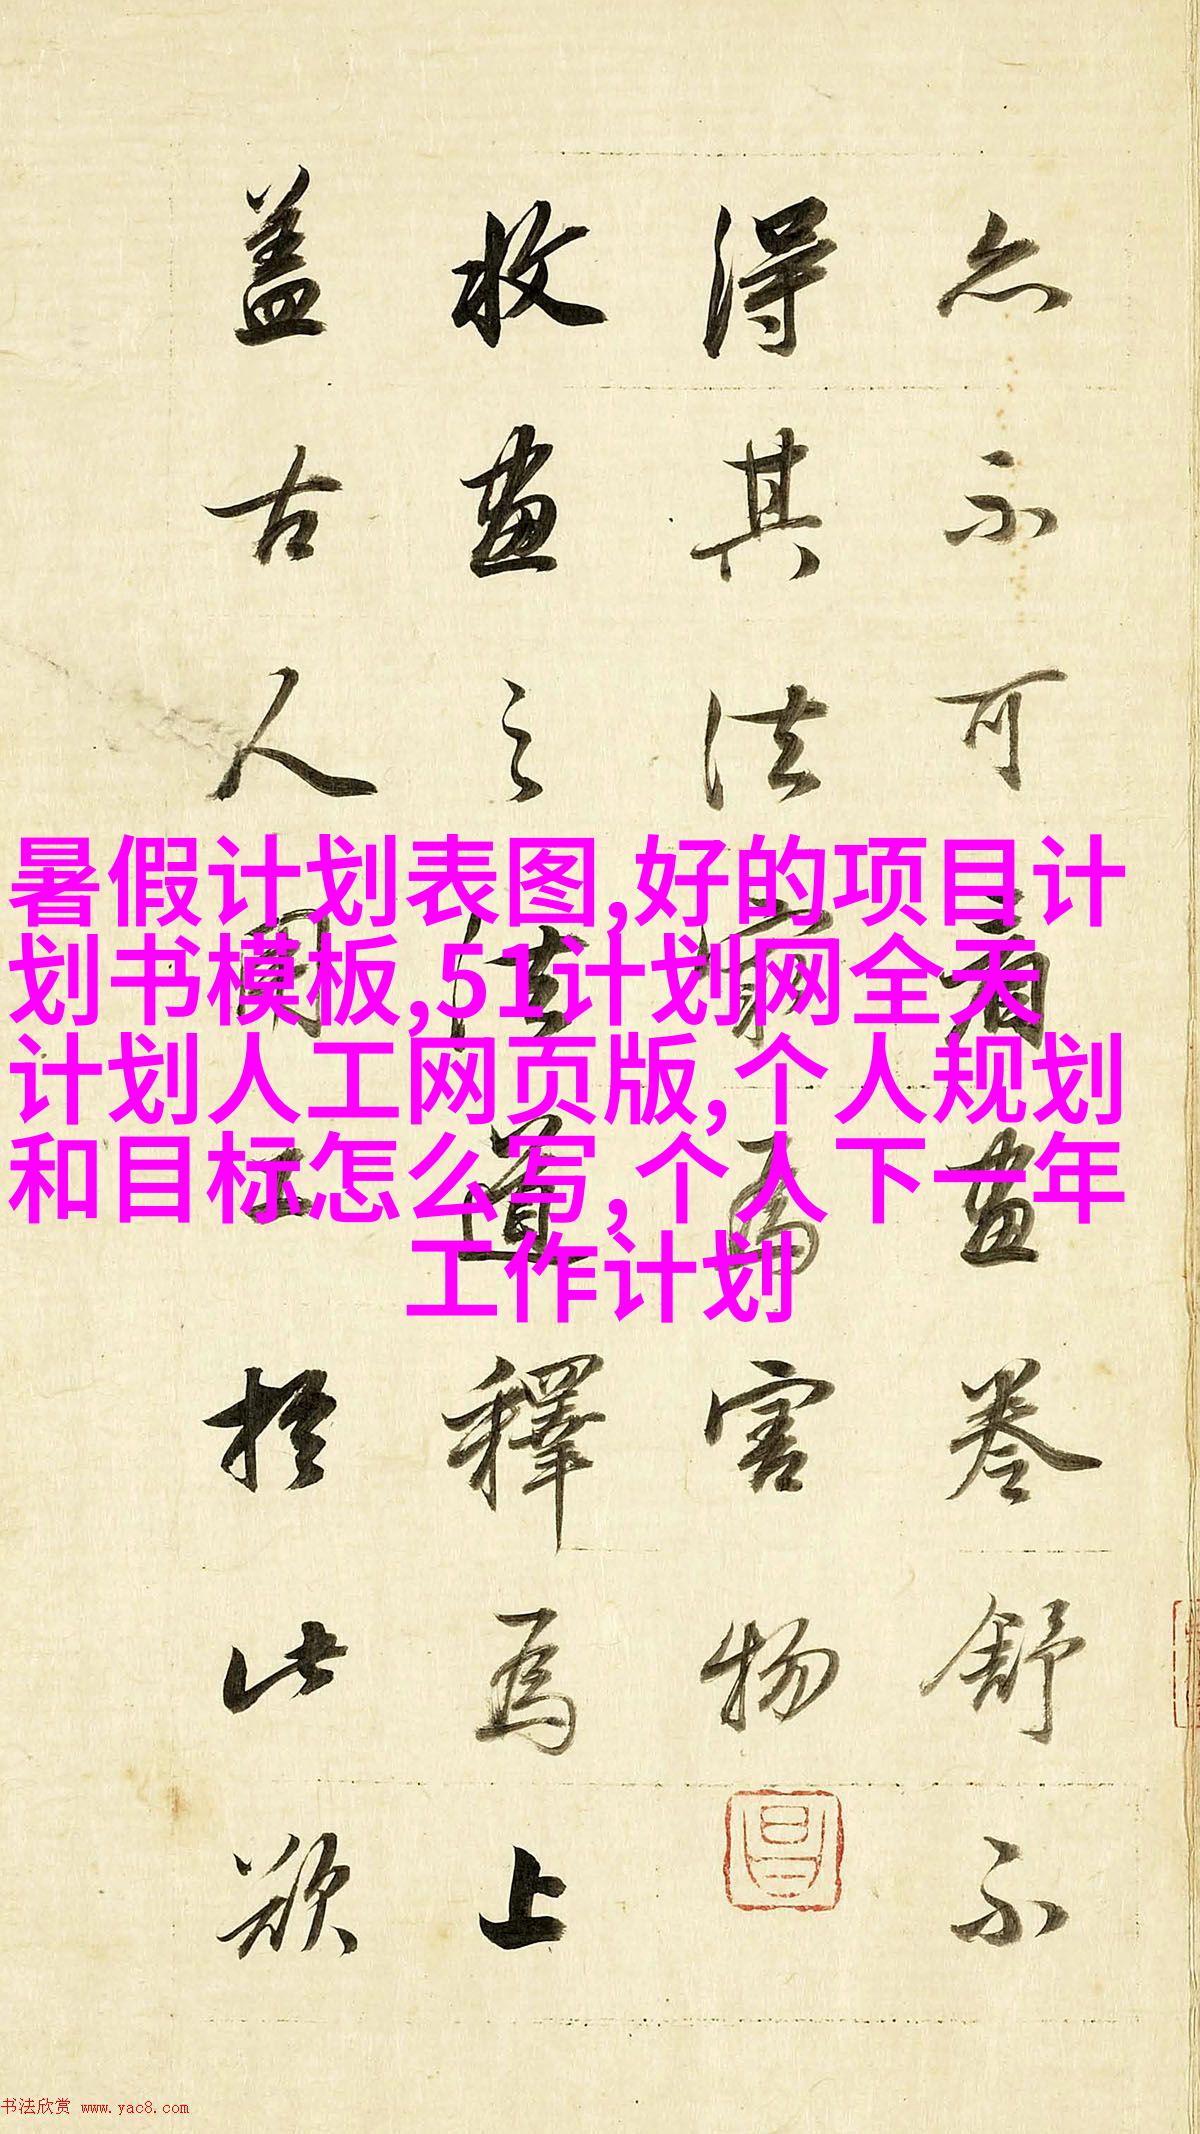 亦不可看畫卷舒不
得其法最為害物
收畫之法道釋為上
蓋古人用工於此欲
暑假计划表图,好的项目计
划书模板,51计划网全天
计划人工网页版,个人规划
和目标怎么写,个人下一年
工作计划
书法欣赏 www.yac8.com